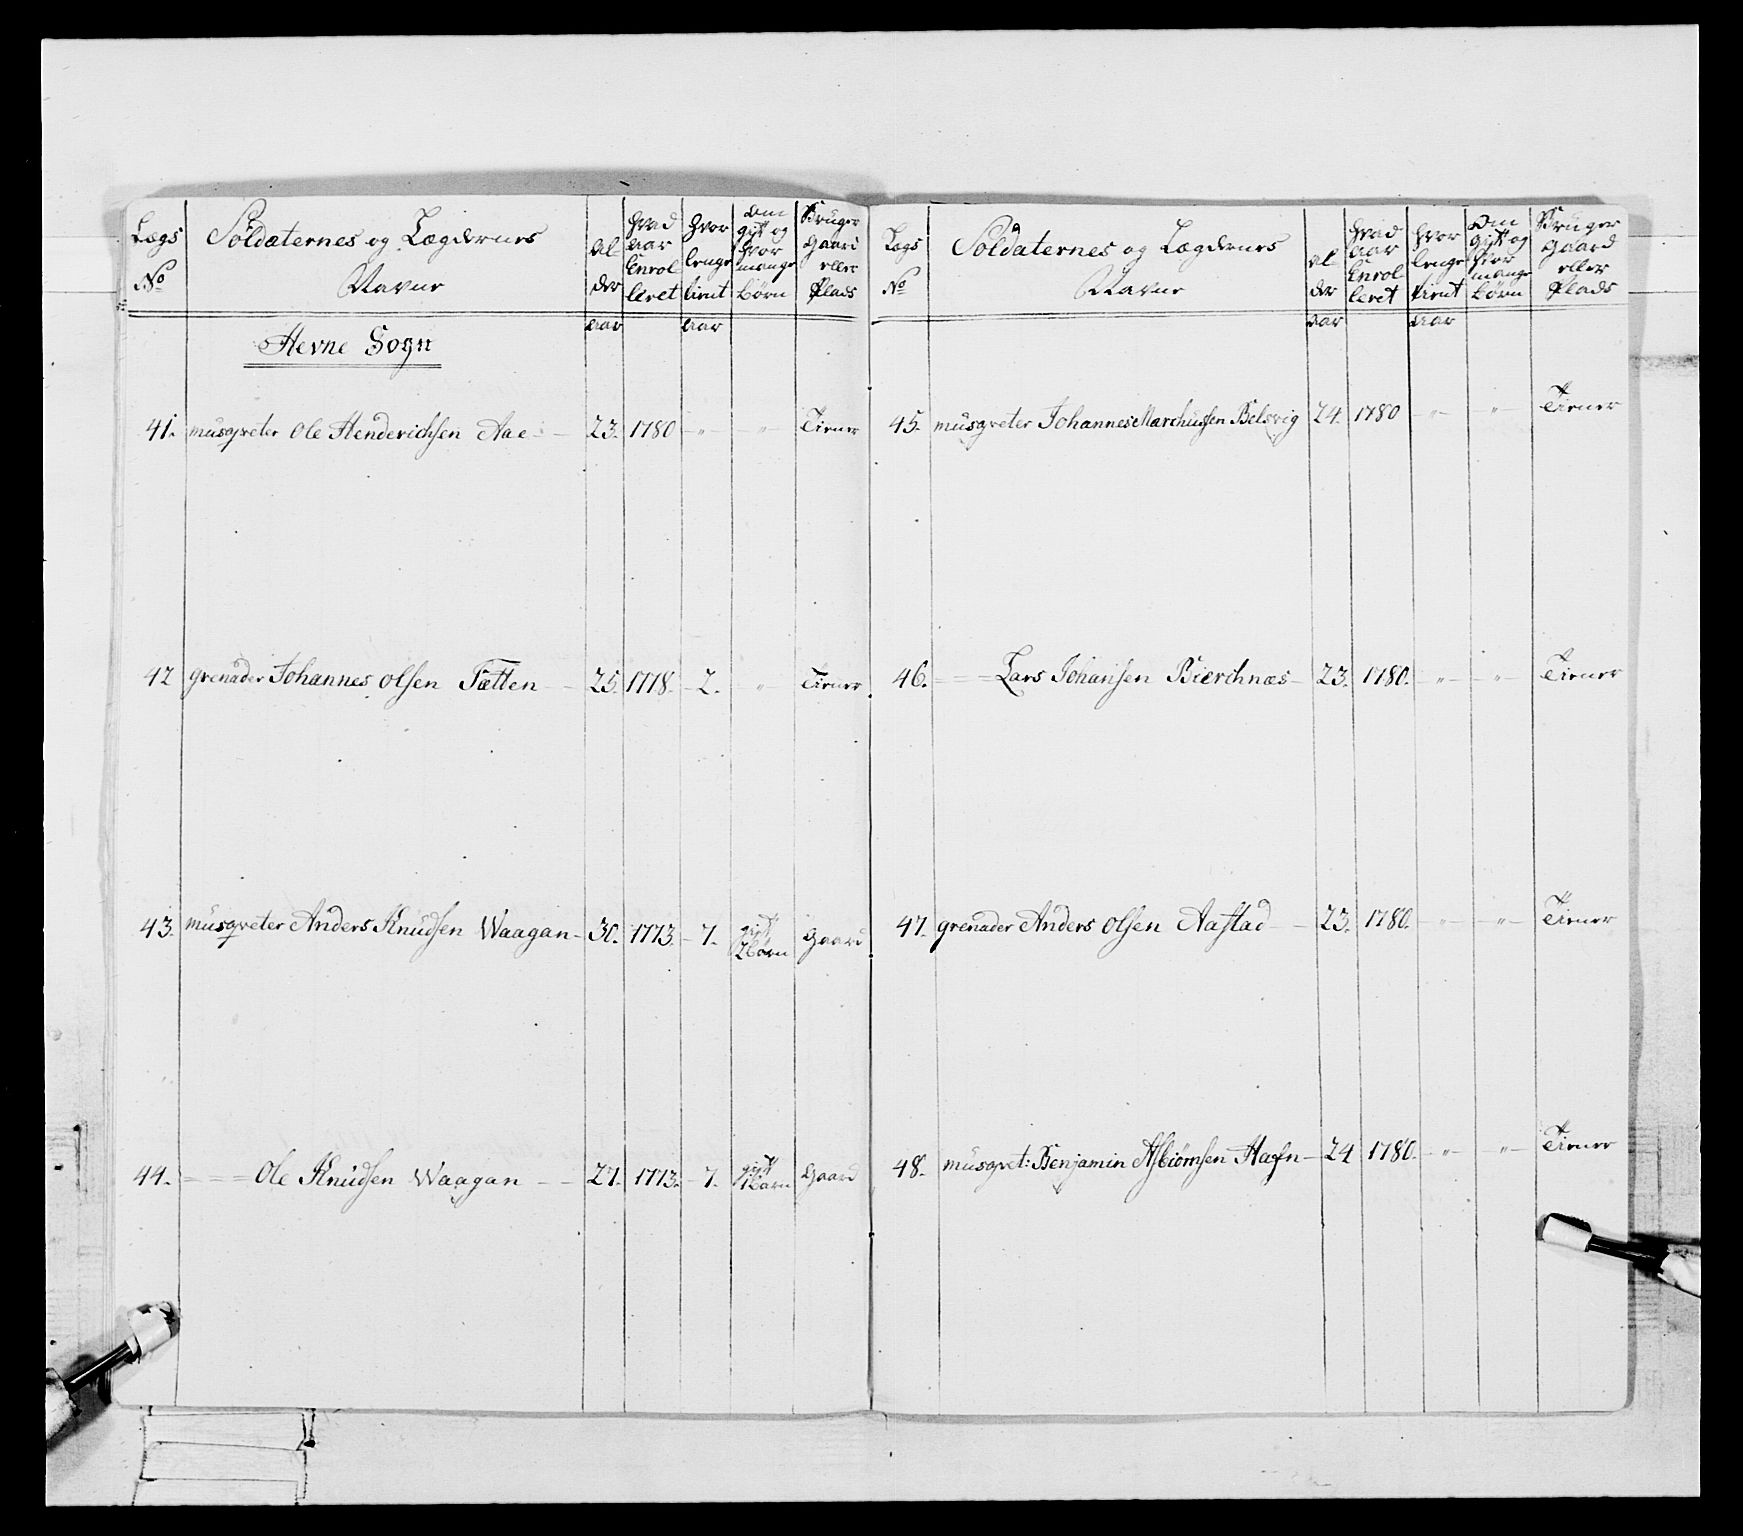 Lægs No | Soldaternes og Lægdernes Navne | Al der aar | hvad aar Enrol leret | hvor lenge tient aar | om gift og hvor mange børn | Bruger gaard eller Plads
Hevne Sogn
41. musqveter Ole Henderichsen Aae — 23. 1780 — „ — „ Tiener
42 grenader Johannes olsen Tætten — 25. 1778. — 2. „ Tiener
43. musqveter Anders Knudsen Waagan — 30. 1773. — 7. gift 2børn Gaard
44. = = = Ole Knudsen Waagan — — 27. 1773. — 7. gift 1Barn Gaard
Lægs No | Soldaternes og Lægdernes Navne | al der aar | hvad aar Enrol leret | hvor lenge tient aar | om gift og hvor mange børn | Bruger gaard eller Plads
45. musqveter Johannes Marchussen Belsvig 24. 1780 — „ — „ Tiener
46. = = = Lars Johansen Bierchnæs — 23. 1780. — „ — „ — Tiener
47. grenader Anders olsen Aastad — 23. 1780. — „ — „ — Tiener
48. musqvet: Benjamin Asbiørnsen Hafn — 24 1780. — „ — „ — Tiener